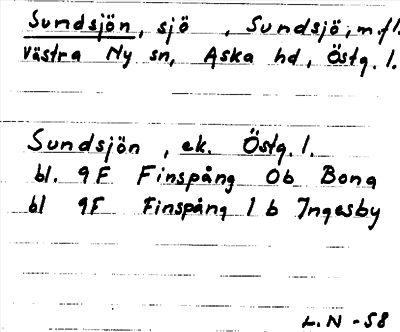 Sundsjön, sjö , Sundsjö, m.fl.
Västra Ny sn, Aska hd, Östg. l.
Sundsjön , ek. Östg. l.
bl. 9F Finspång 0b Bona
bl 9F Finspång 1 b Ingesby
L.N -58